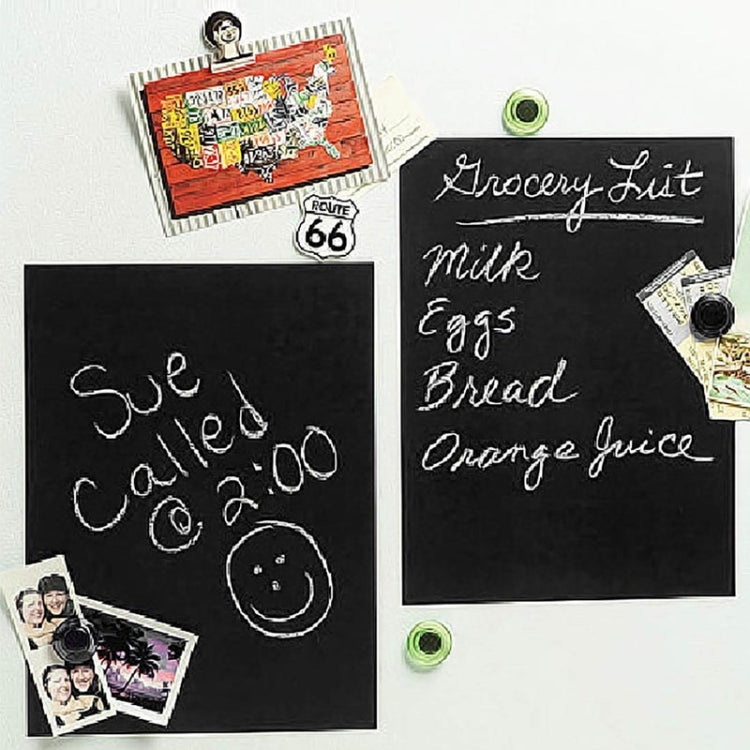 ROUTE
66
Grocery List
Milk
Eggs
Bread
Orange Juice
Sue
Called
@ 2:00